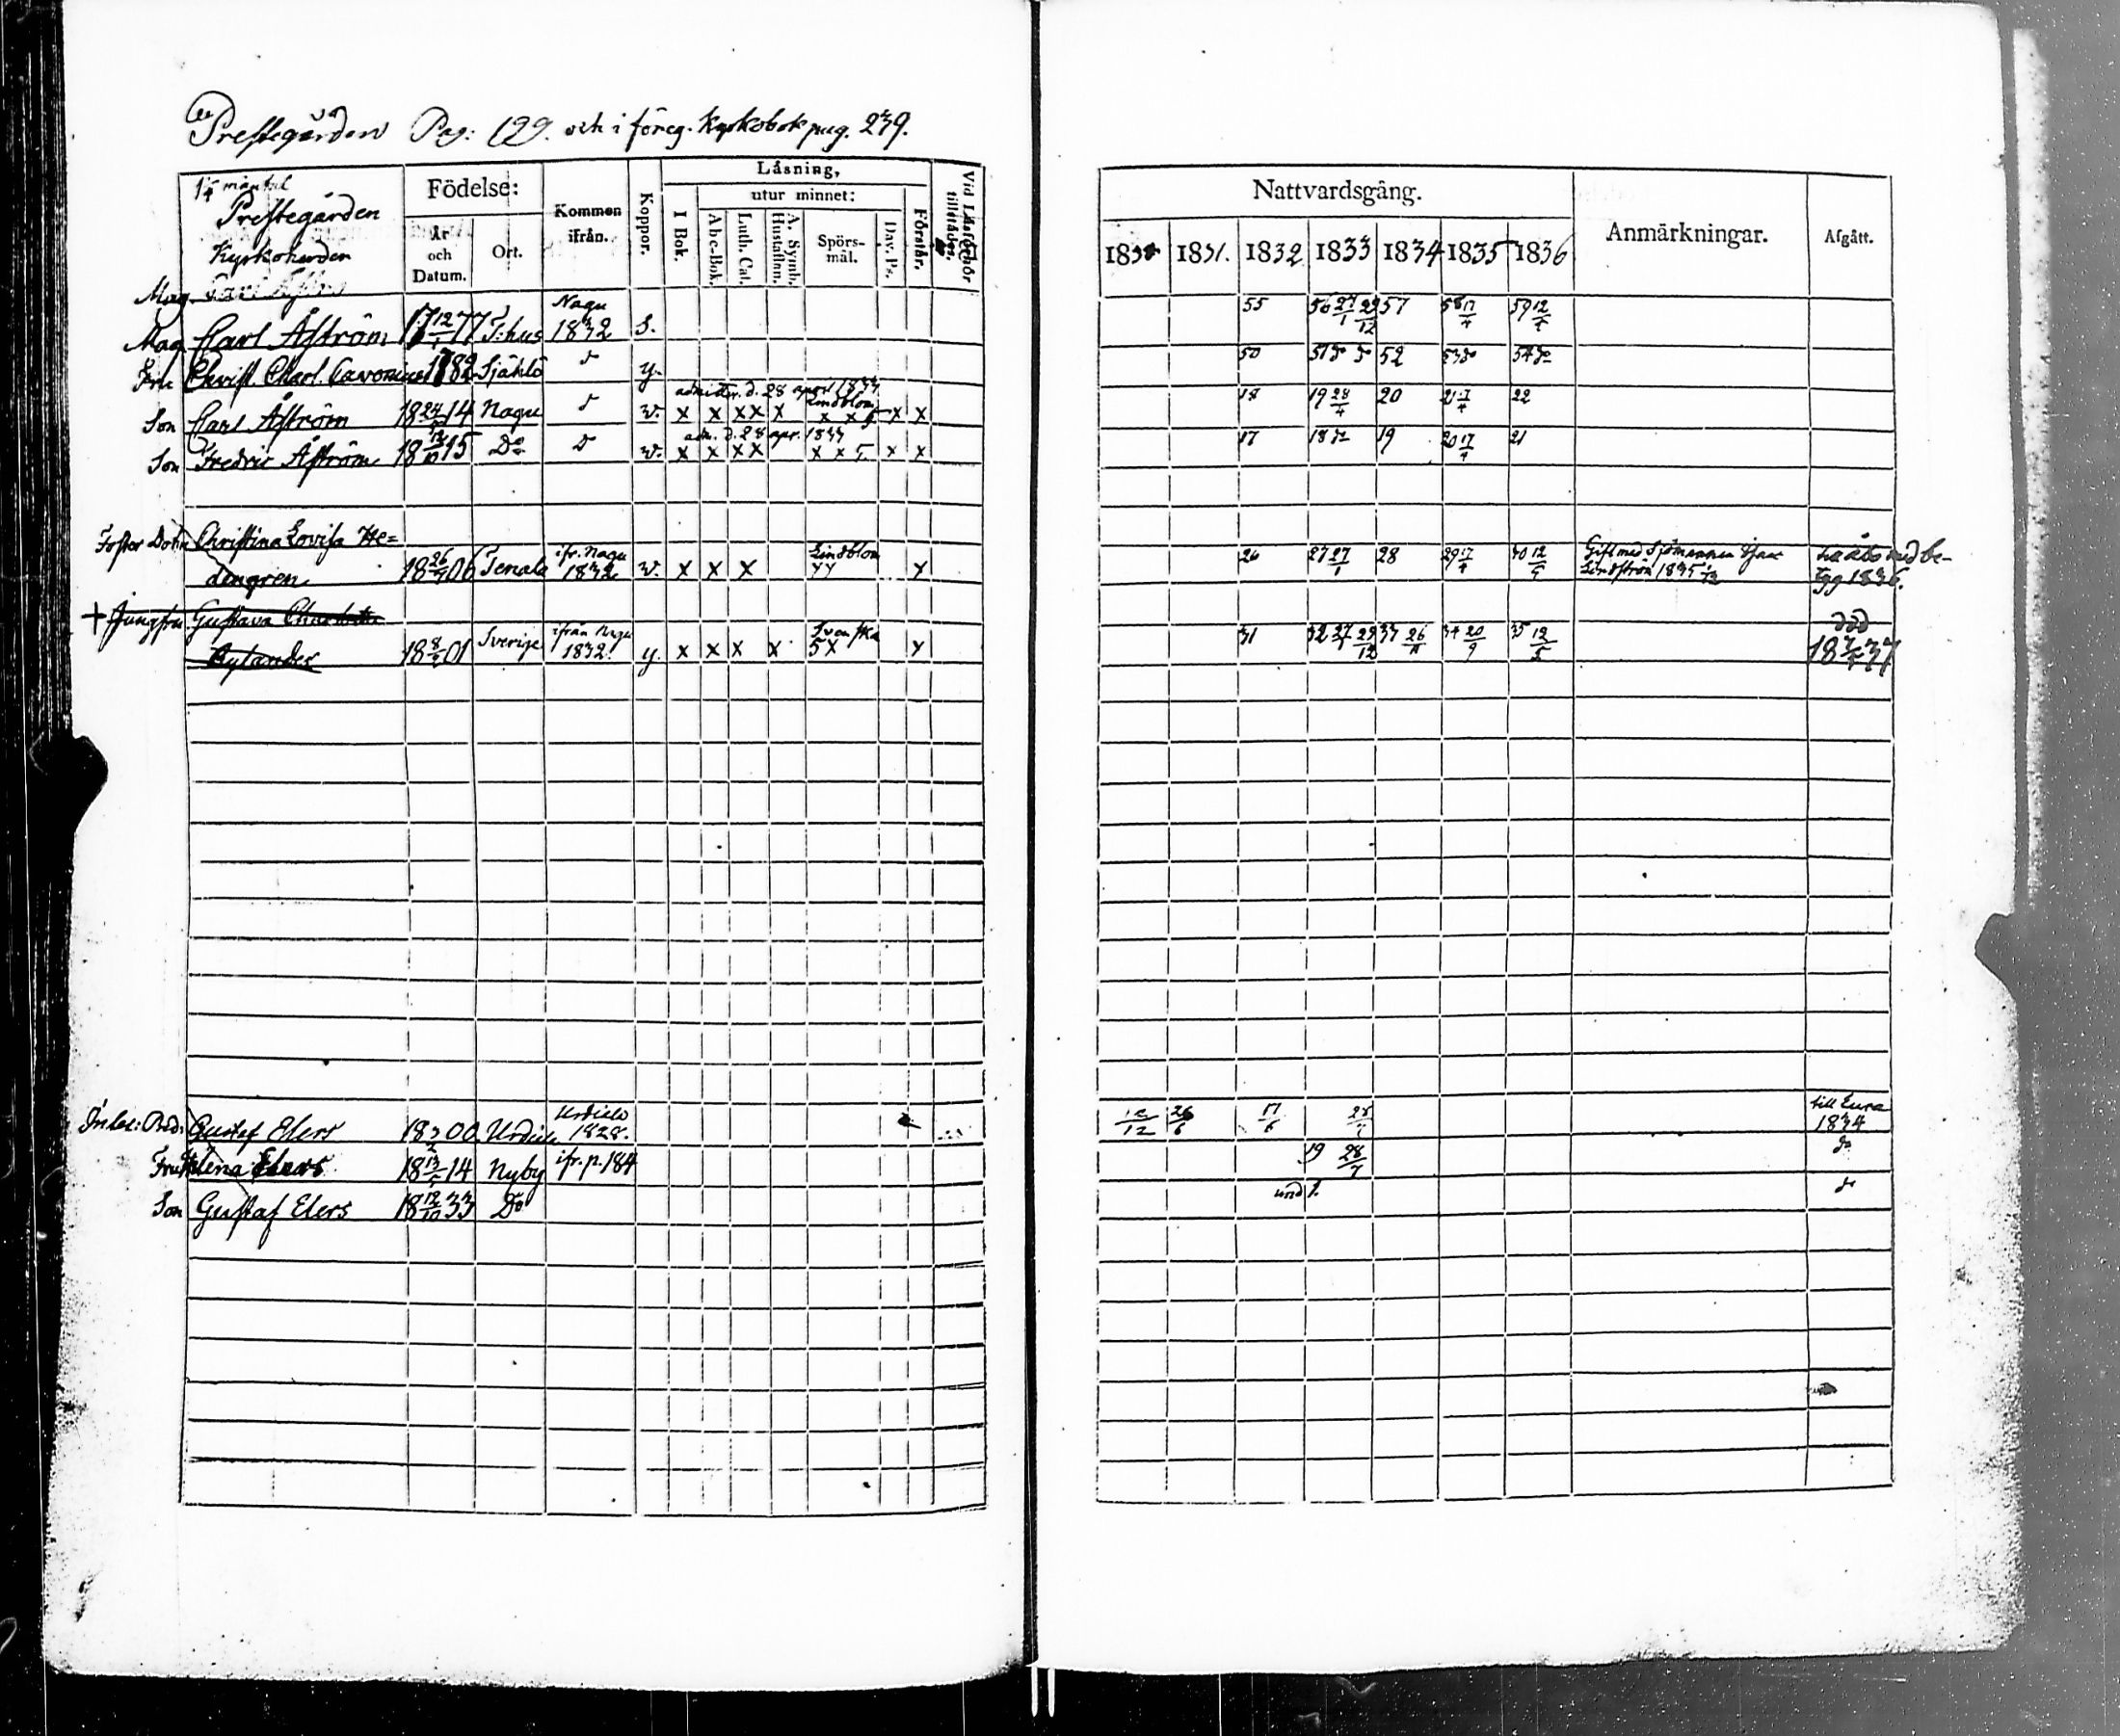 Prestegården Pag: 129. och i föreg. Kyrkobok pag. 239.
Prestegården
Kyrkoherden
Födelse:
År och Datum.
Ort.
Kommen ifrån.
Koppor.
Läsning,
utur minnet:
I Bok.
Abc-Bok.
Luth. Cat.
A. Symb. Hustaflan.
Spörsmål.
Dav. Ps.
Förstår.
Vid Läsförhör tillstädes.
Nattvardsgång.
1831. 1832 1833 1834 1835 1836
Anmärkningar.
Afgått.
Mag
Mag Carl Åström 17 12/1 77 T:hus Nagu 1832 s. 55 56 57 58 17/4 59 12/4
Fru Christ. Charl. 1782 Själö d y. 50 51 52 53 54
Son Carl Åström 18 24/ 14 Nagu d v. x x xx x admitt. d. 28 apr. 1833 Lindblom x x 5 x x 18 19 28/4 20 21 17/4 22
Son Fredric Åström 18 12/10 15 Do D v. x x xx adm. d. 28 apr. 1833 x x 5. x x 17 18 19 20 17/4 21
Foster Dottr Christina Lovisa He=
dengren 18 26/ 06 Tenala ifr. Nagu 1832 v. x x x Lindblom xx x 26 27 27/1 28 29 17/4 30 12/ Gift med Sjömannen Isaac Lindström 1835 till Åbo med be- tyg 1836.
+ Jungfru Gustava Charlotta
Rylander 18 8/ 01 Sverige ifrån Nagu 1832. y. x x x x Svenska 5x x 31 32 27/1 29/12 33 26/ 34 20/9 35 12/5 död 18 37
Gustaf Elers 18 00 1828. 12 26/6 17/6 28/ till Eura 1834
Fru Helena Elers 18 13/ 14 Nyby ifr. p. 184 19 28/7 do
Son Gustaf Elers 18 12/10 33 Do und 1. do